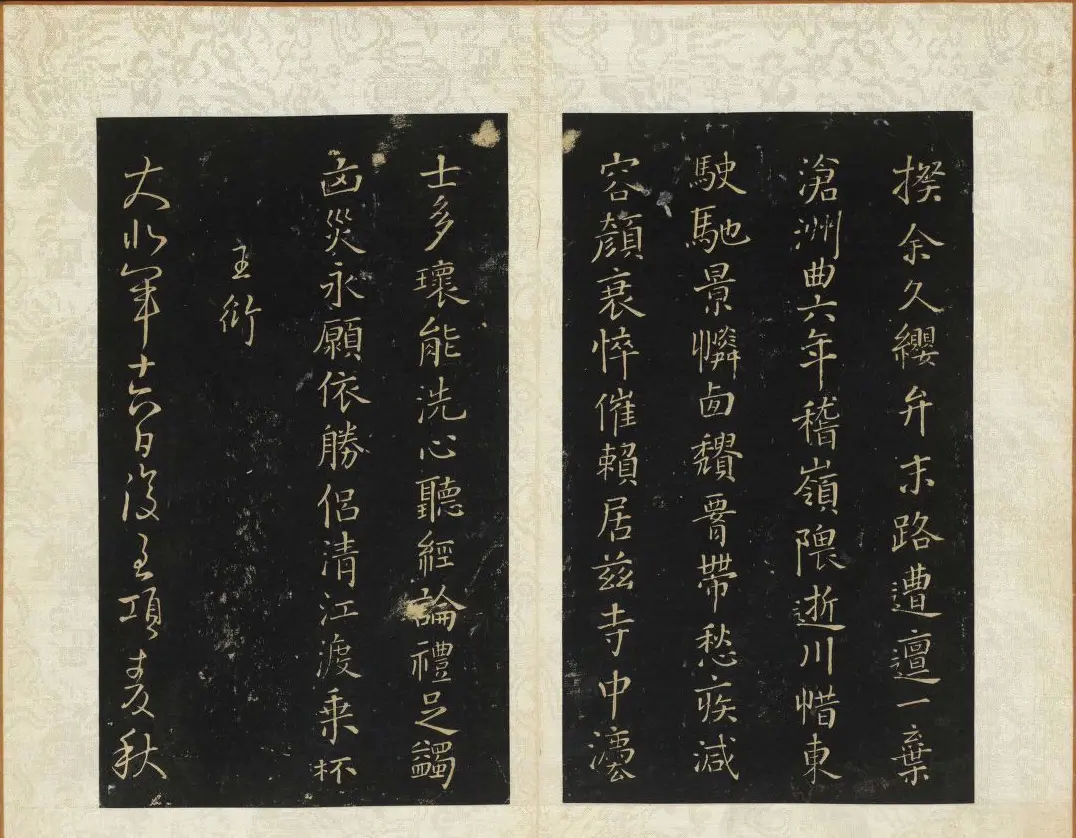 揆余久纓弁末路遭邅一棄
滄洲曲六年稽嶺隈逝川惜東
駛馳景憐卥頹帶愁疾減
容顏衰悴催賴居茲寺中灋
士多瓌能洗心聽經論禮足蠲
凶災永願依勝侶清江渡乘杯
王衍
大北軍十六日復至項秋